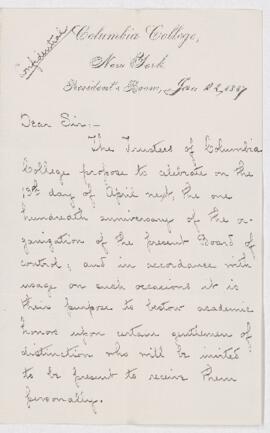 Confidential
Columbia College,
New York
President's Room, Jan 22, 1887
Dear Sir:-
The Trustees of Columbia
College propose to celebrate on the
13th day of April next, the one
hundreath anniversary of the or-
ganization of the present Board of
control; and in accordance with
usage on such occasions it is
their purpose to bestow academic
honors upon certain gentlemen of
distinction who will be invited
to be present to receive them
personally.